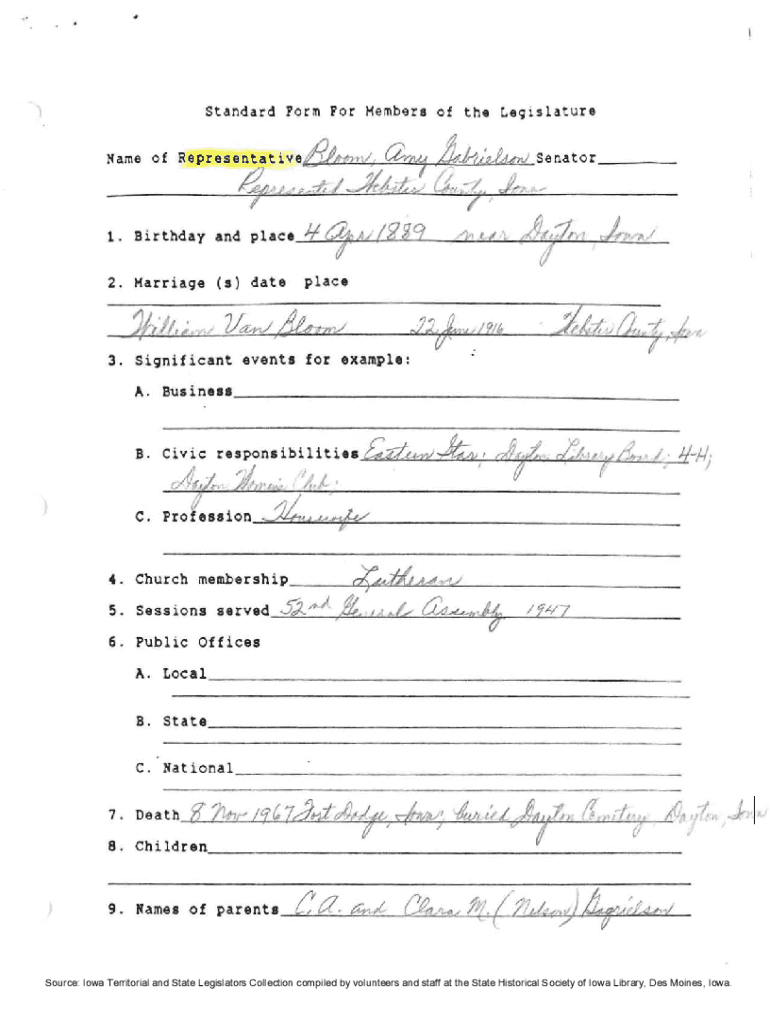 Standard Form For Members of the Legislature
Name of Representative Bloom, Amy Gabrielson Senator
Represented Webster County, Iowa
1. Birthday and place 4 Apr 1889 near Dayton, Iowa
2. Marriage (s) date place
William Van Bloom 22 June 1916 Webster County, Iowa
3. Significant events for example:
A. Business
B. Civic responsibilities Eastern Star; Dayton Library Board; 4-H;
Dayton Women's Club;
C. Profession Housewife
4. Church membership Lutheran
5. Sessions served 52nd General Assembly 1947
6. Public Offices
A. Local
B. State
C. National
7. Death 8 Nov 1967 Fort Dodge, Iowa; buried Dayton Cemetery, Dayton, Iowa
8. Children
9. Names of parents C.A. and Clara M. (Nelson) Gagrielson
Source: Iowa Territorial and State Legislators Collection compiled by volunteers and staff at the State Historical Society of Iowa Library, Des Moines, Iowa.